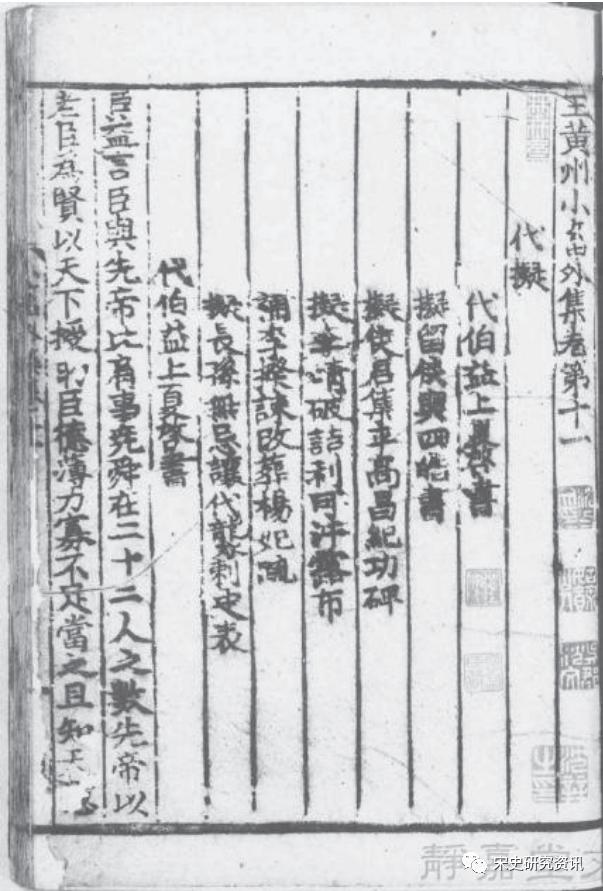 王黃州小畜外集卷第十一
代擬
代伯益上夏啓書
擬留侯與四皓書
擬侯君集平高昌紀功碑
擬李靖破頡利可汗露布
補李揆諫改葬楊妃疏
擬長孫無忌讓代襲刺史表
代伯益上夏啓書
臣益言臣與先帝比肩事堯舜在二十二人之數先帝以
老臣爲賢以天下授臣德薄力寡不足當之且知
靜嘉堂文
宋史研究资讯